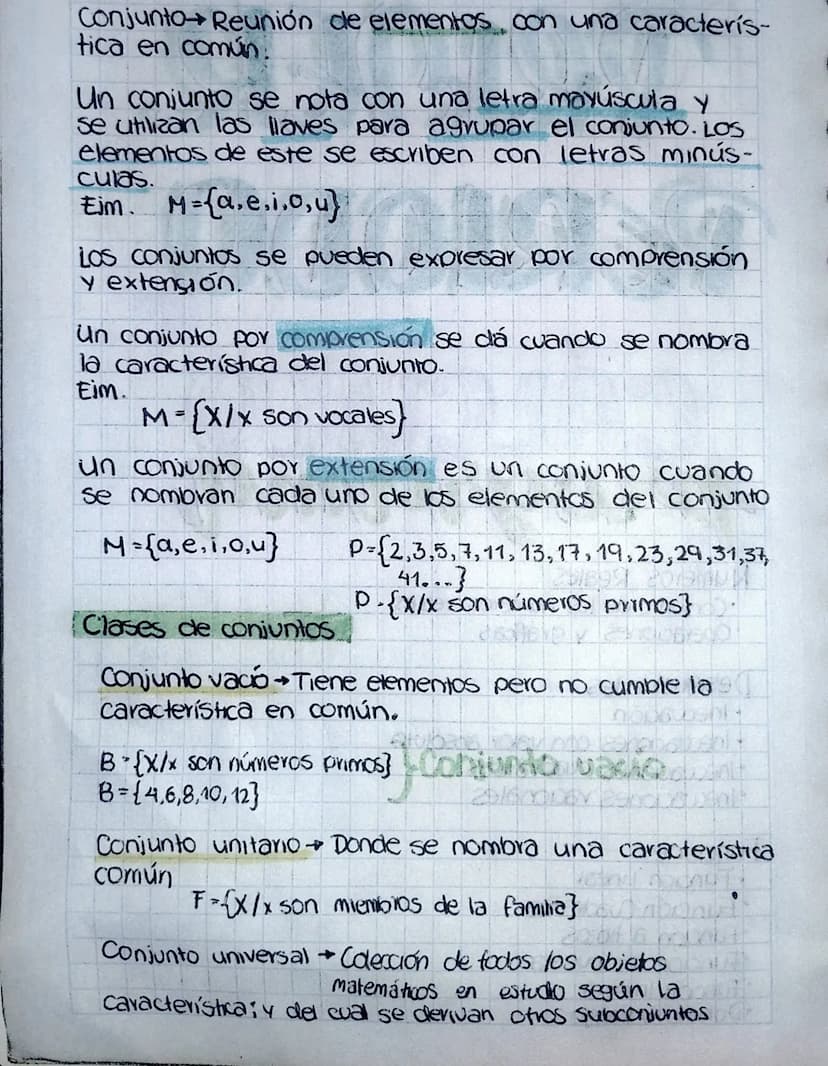 Conjunto→ Reunión de elementos con una caracterís-
tica en común.
Un conjunto se nota con una letra mayúscula y
se utilizan las llaves para agrupar el conjunto. Los
elementos de este se escriben con letras minús-
culas.
Ejm. M={a,e,i,o,u}
Los conjuntos se pueden expresar por comprensión
y extención.
Un conjunto por comprensión se dá cuando se nombra
la característica del conjunto.
Ejm.
M={X/x son vocales}
Un conjunto por extensión es un conjunto cuando
se nombran cada uno de los elementos del conjunto
M={a,e,i,o,u} P={2,3,5,7,11,13,17,19,23,29,31,37,
41...}
P={X/x son números primos}
Clases de conjuntos
Conjunto vacío→Tiene elementos pero no cumple la
característica en común.
B={X/x son números primos} }Conjunto vacío
B={4,6,8,10,12}
Conjunto unitario→ Donde se nombra una característica
común
F={X/x son miembros de la familia}
Conjunto universal→ Colección de todos los objetos
matemáticos en estudio según la
característica; y del cual se derivan otros subconjuntos